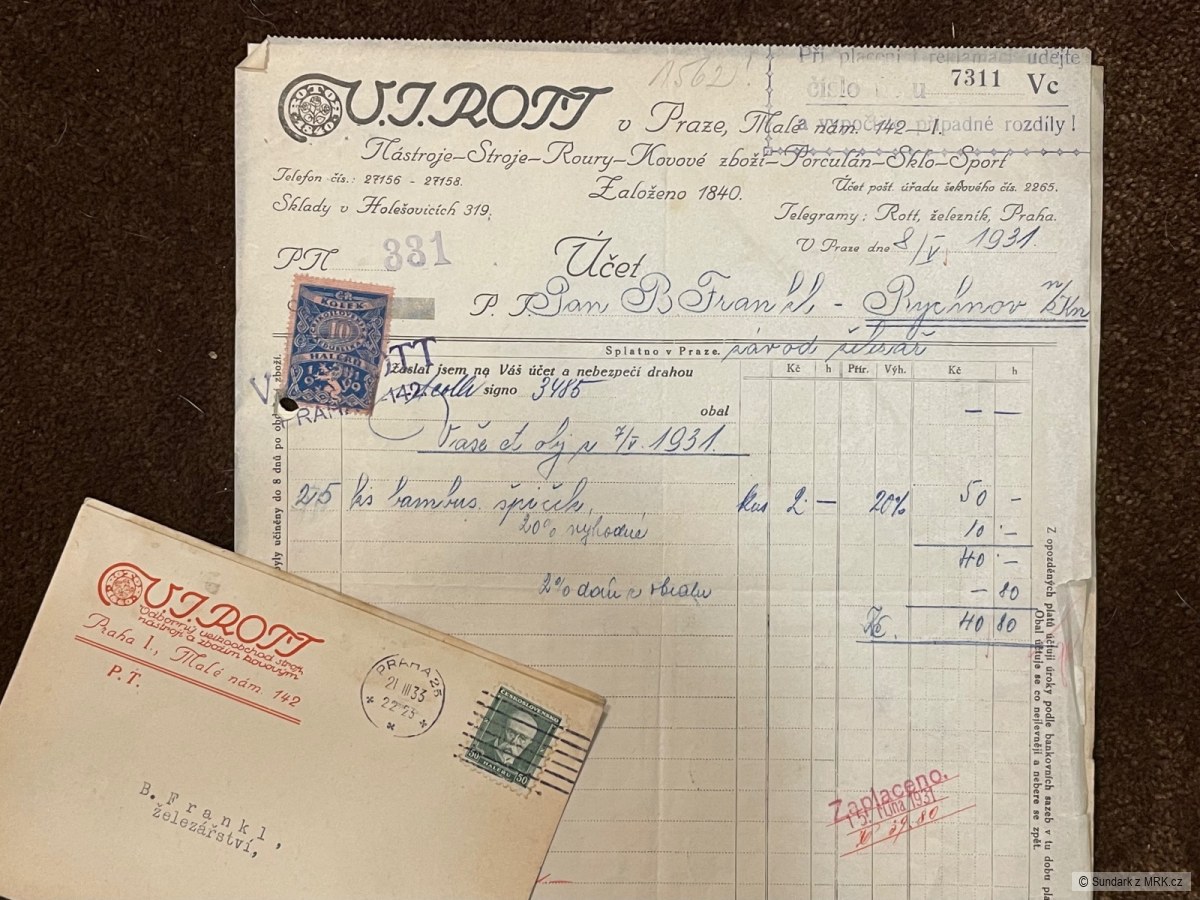 Při placení i reklamaci udejte
číslo
7311 Vc
a vypočtěte případné rozdíly!
V.J.ROTT
1840
v Praze, Malé nám. 142–I.
Nástroje–Stroje–Roury–Kovové zboží–Porculán–Sklo–Sport
Telefon čís.: 27156 - 27158.
Založeno 1840.
Účet pošt. úřadu šekového čís. 2265.
Sklady v Holešovicích 319,
Telegramy: Rott, železník, Praha.
V Praze dne 8/V. 1931.
PN 331
Účet
P. T. Pan B Frankl - Rychnov n/Kn
závod želez
Splatno v Praze.
KOLEK
10
HALÉŘŮ
PRAHA 142
zaslal jsem na Váš účet a nebezpečí drahou
signo 3485
obal
Kč h Přír. Výh. Kč h
— —
Vaše ct obj z 7/V. 1931.
25 ks bambus. špiček, kus 2 — 20% 50 –
20% výhodné 10 –
40 –
2% daň z obratu – 80
Kč 40 80
Zaplaceno.
15. října 1931
Kč 39.80
Z opozděných platů účtuji úroky podle bankovních sazeb v tu dobu
Obal účtuje se co nejlevněji a nebere se zpět.
V.J.ROTT
Odborný velkoobchod stroji,
nástroji a zbožím kovovým
Praha I., Malé nám. 142
P. T.
PRAHA 25
21 III 33
22-23
ČESKOSLOVENSKO
50 HALÉŘŮ 50
B. Frankl,
železářství,
© Sundark z MRK.cz